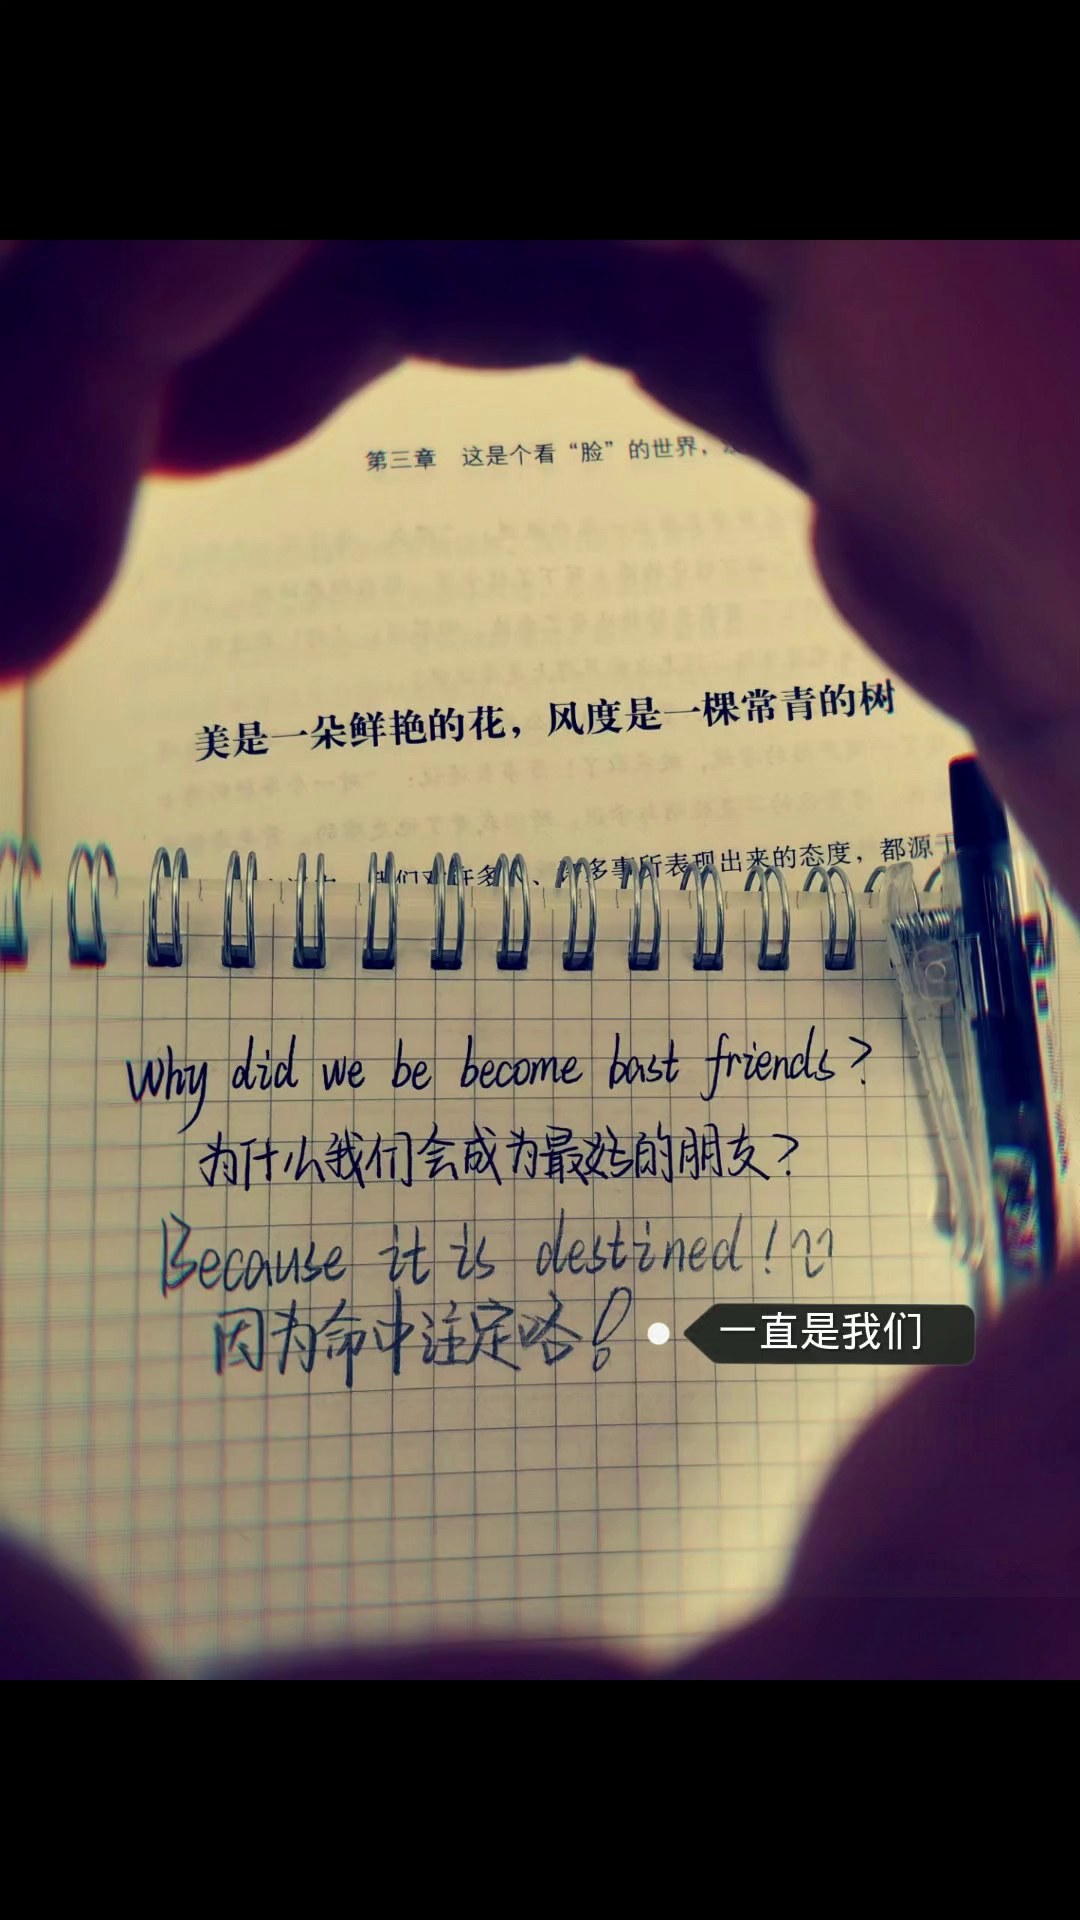 第三章 这是个看“脸”的世界，
美是一朵鲜艳的花，风度是一棵常青的树
们对许多、多事所表现出来的态度，都源于
Why did we be become bast friends?
为什么我们会成为最好的朋友？
Because it is destined!
因为命中注定咯！
一直是我们